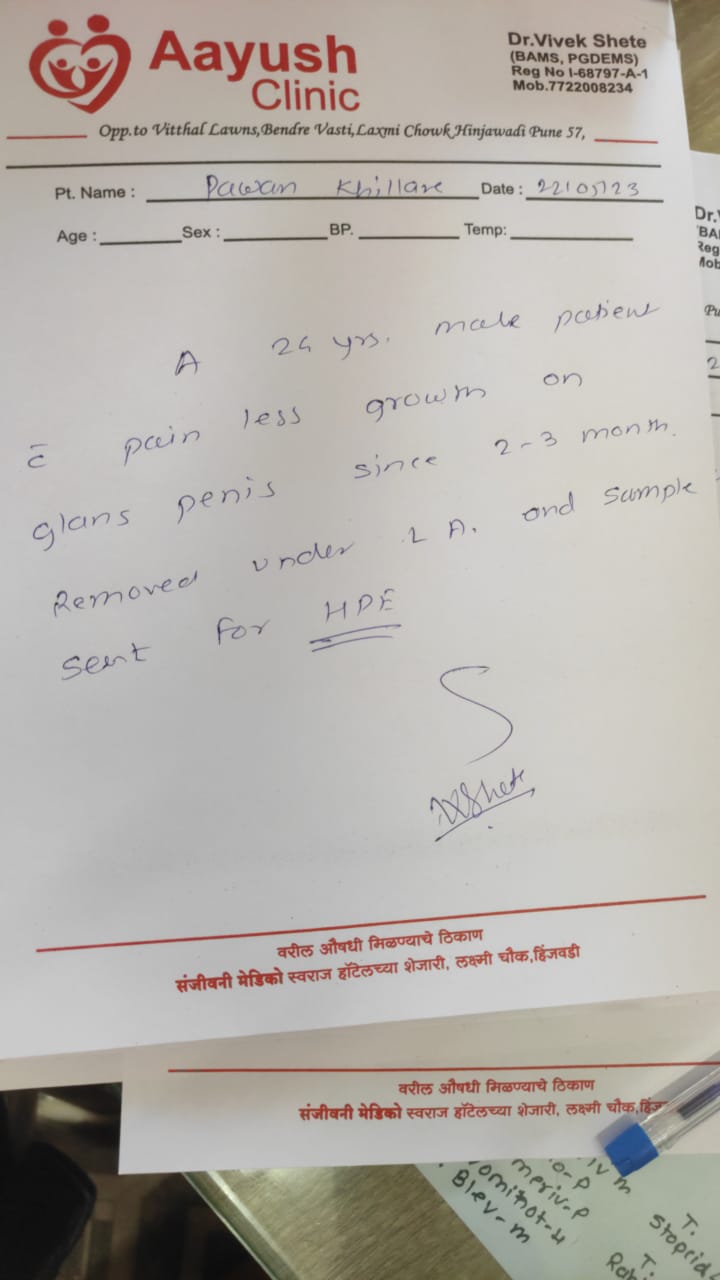 Aayush
Clinic
Dr.Vivek Shete
(BAMS, PGDEMS)
Reg No I-68797-A-1
Mob.7722008234
Opp.to Vitthal Lawns,Bendre Vasti,Laxmi Chowk,Hinjawadi Pune 57,
Pt. Name : Pawan Khillare Date : 22/05/23
Age : Sex : BP. Temp:
A 24 yrs. male patient
c̄ pain less growth on
glans penis since 2-3 month.
Removed under L A. and sample
sent for HPE
Shete
वरील औषधी मिळण्याचे ठिकाण
संजीवनी मेडिको स्वराज हॉटेलच्या शेजारी, लक्ष्मी चौक,हिंजवडी
Dr.
BA
Reg
Mob
Pu
2
वरील औषधी मिळण्याचे ठिकाण
संजीवनी मेडिको स्वराज हॉटेलच्या शेजारी, लक्ष्मी चौक,हिंज
meriv-P
Blev-m
T.
T.